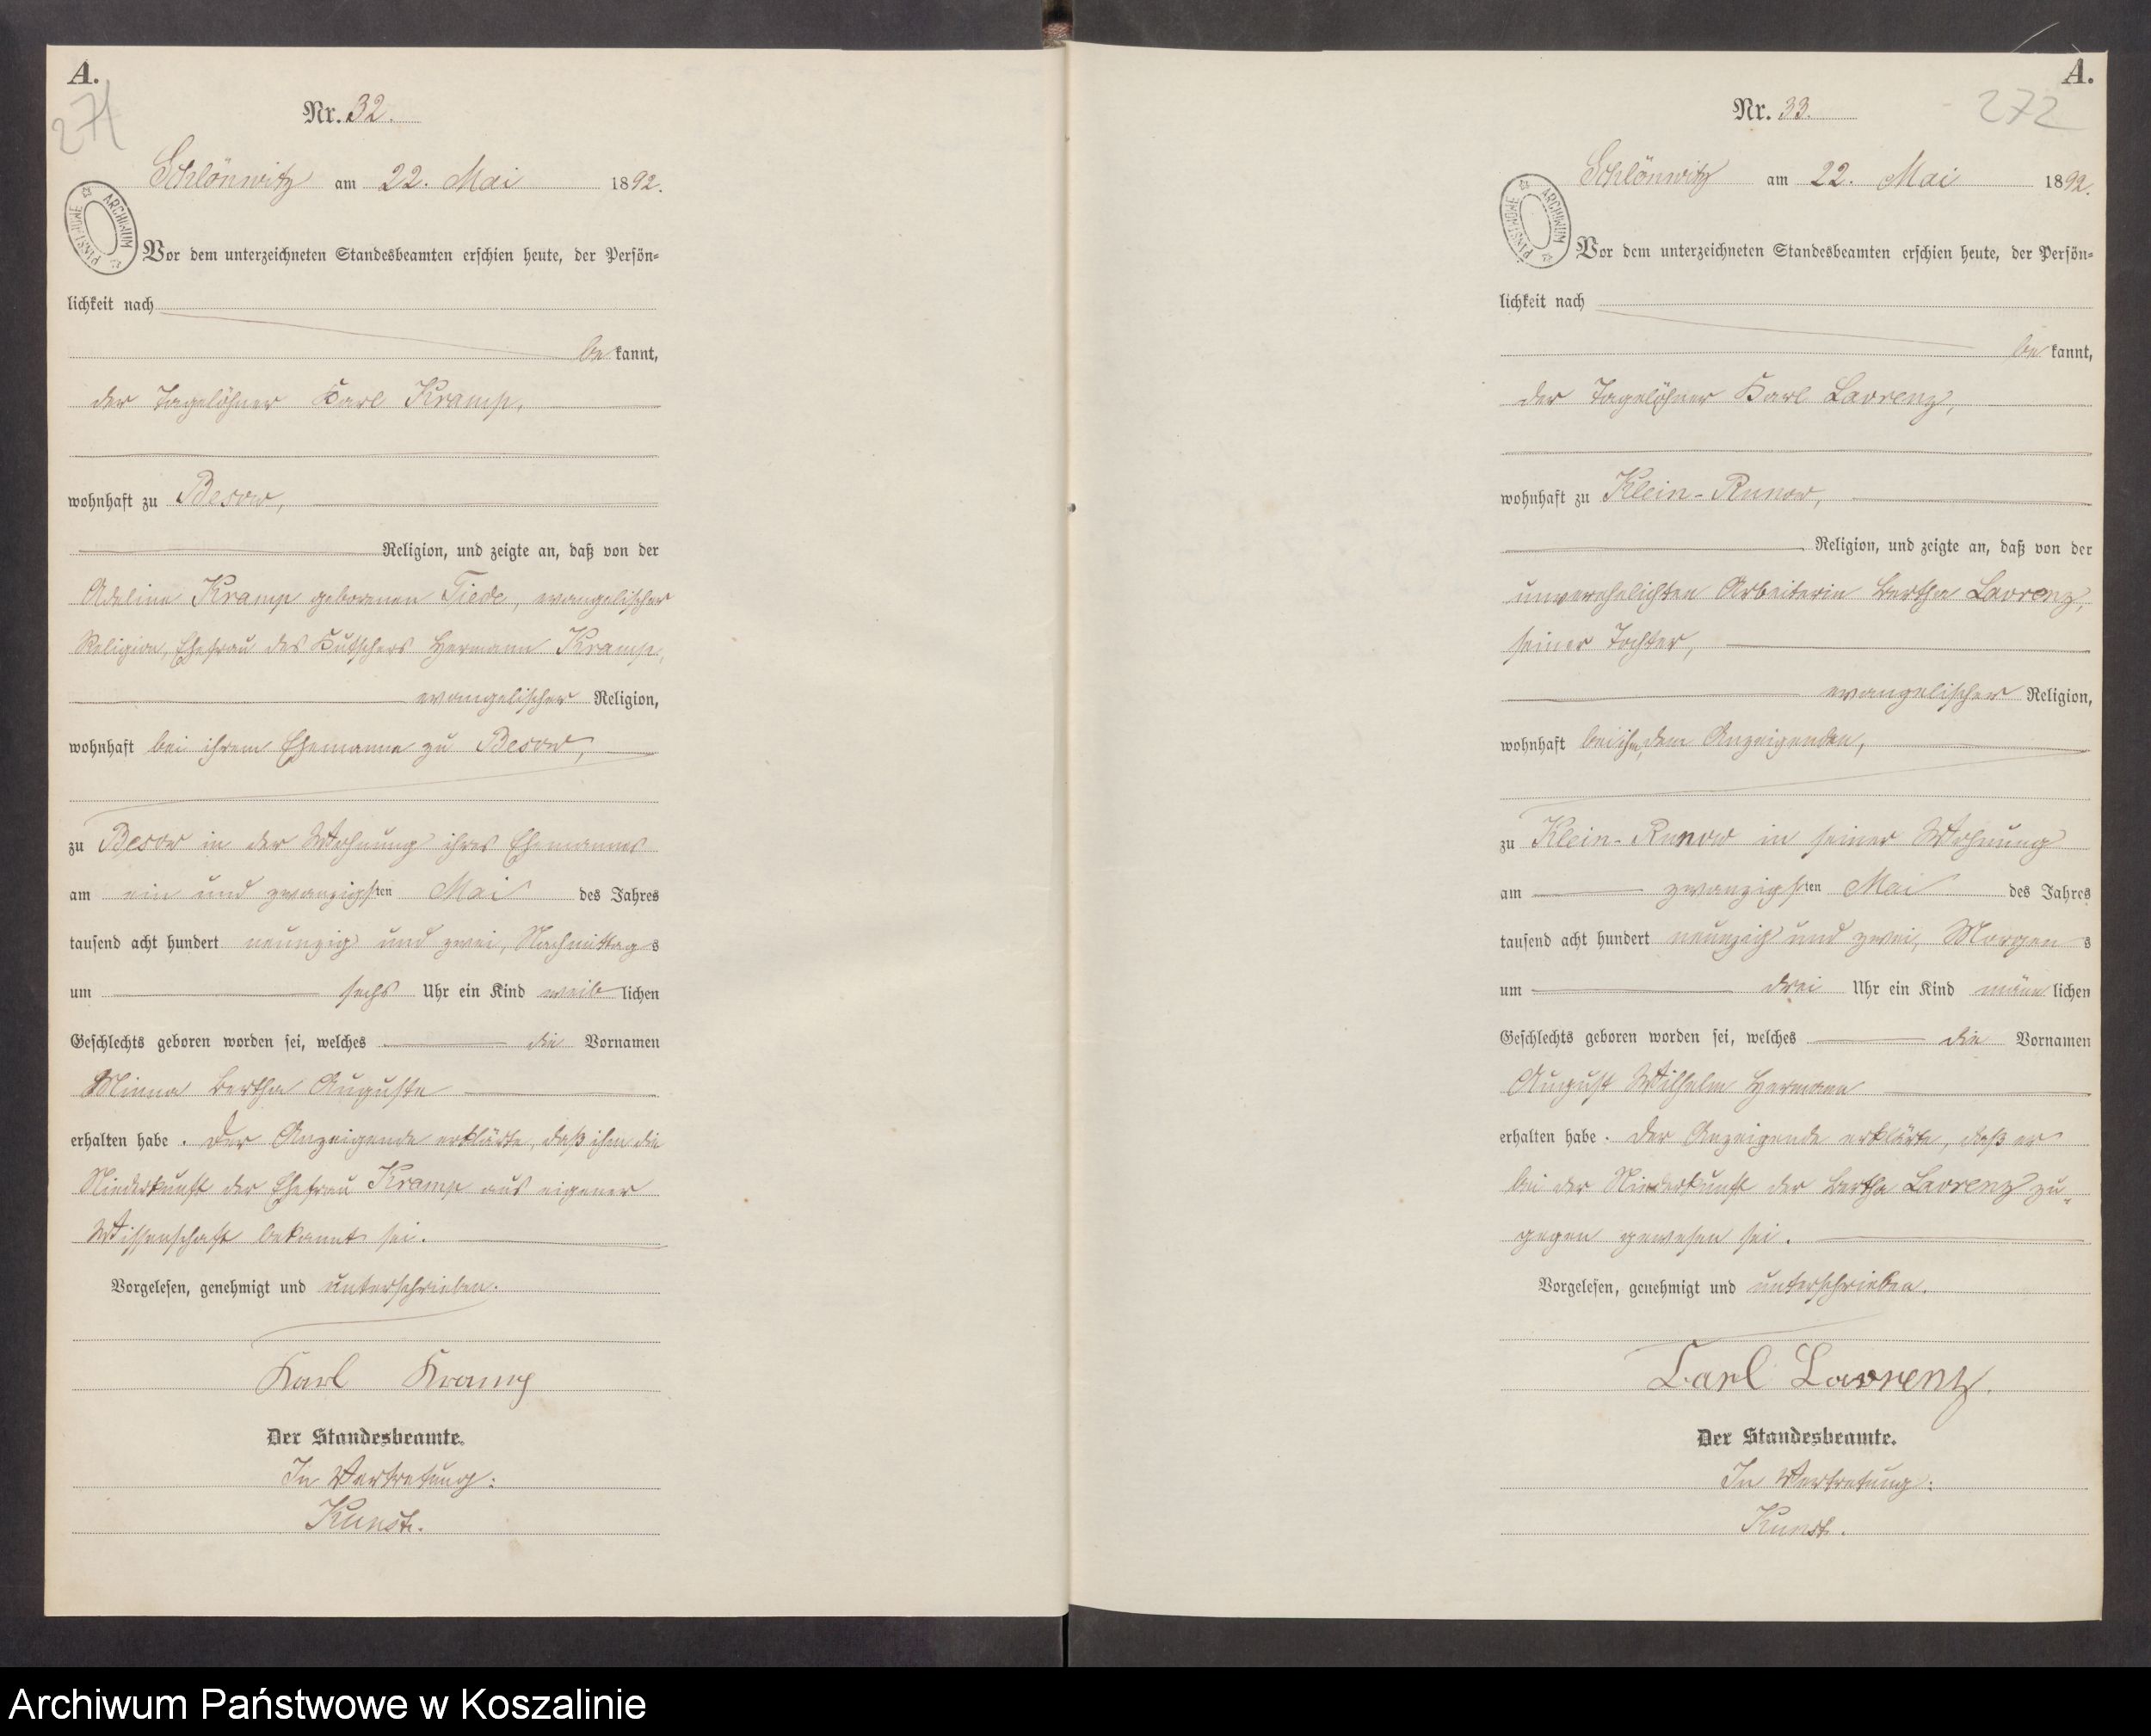 A.
271
Nr. 32.
Schlönwitz am 22. Mai 1892.
ARCHIWUM PAŃSTWOWE
Vor dem unterzeichneten Standesbeamten erschien heute, der Persön=
lichkeit nach
be kannt,
der Tagelöhner Karl Kramp,
wohnhaft zu Besow,
Religion, und zeigte an, daß von der
Adeline Kramp geborenen Tiede, evangelischer
Religion, Ehefrau des Kutschers Hermann Kramp,
evangelischer Religion,
wohnhaft bei ihrem Ehemanne zu Besow,
zu Besow in der Wohnung ihres Ehemannes
am ein und zwanzigsten Mai des Jahres
tausend acht hundert neunzig und zwei, Nachmittags
um sechs Uhr ein Kind weiblichen
Geschlechts geboren worden sei, welches die Vornamen
Minna Bertha Auguste
erhalten habe. Der Anzeigende erklärte, daß ihm die
Niederkunft der Ehefrau Kramp aus eigener
Wissenschaft bekannt sei.
Vorgelesen, genehmigt und unterschrieben.
Karl Kramp
Der Standesbeamte.
In Vertretung:
Kunst.
A.
272
Nr. 33.
Schlönwitz am 22. Mai 1892.
ARCHIWUM PAŃSTWOWE
Vor dem unterzeichneten Standesbeamten erschien heute, der Persön=
lichkeit nach
be kannt,
der Tagelöhner Karl Lavrenz,
wohnhaft zu Klein-Runow,
Religion, und zeigte an, daß von der
unverehelichten Arbeiterin Bertha Lavrenz,
seiner Tochter,
evangelischer Religion,
wohnhaft bei ihm, dem Anzeigenden,
zu Klein-Runow in seiner Wohnung
am zwanzigsten Mai des Jahres
tausend acht hundert neunzig und zwei, Morgens
um drei Uhr ein Kind männlichen
Geschlechts geboren worden sei, welches die Vornamen
August Wilhelm Hermann
erhalten habe. Der Anzeigende erklärte, daß er
bei der Niederkunft der Bertha Lavrenz zu=
gegen gewesen sei.
Vorgelesen, genehmigt und unterschrieben.
Carl Lavrenz.
Der Standesbeamte.
In Vertretung:
Kunst.
Archiwum Państwowe w Koszalinie